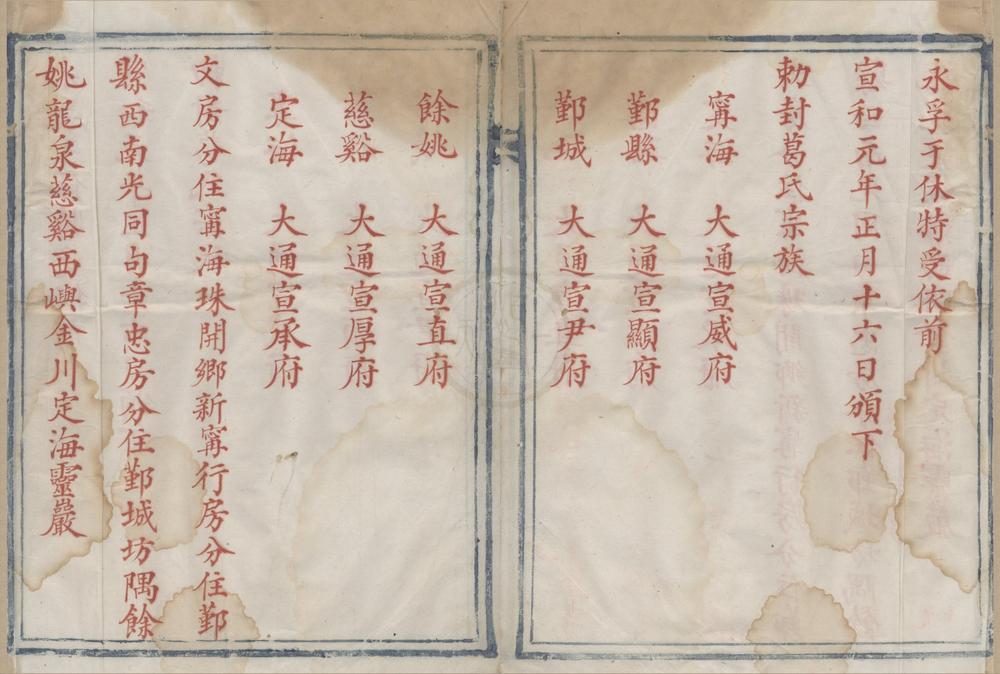 永孚于休特受依前
宣和元年正月十六日頒下
勅封葛氏宗族
寗海　大通宣威府
鄞縣　大通宣顯府
鄞城　大通宣尹府
餘姚　大通宣直府
慈谿　大通宣厚府
定海　大通宣承府
文房分住寗海珠開鄉新寗行房分住鄞
縣西南光同句章忠房分住鄞城坊隅餘
姚龍泉慈谿西嶼金川定海靈巖